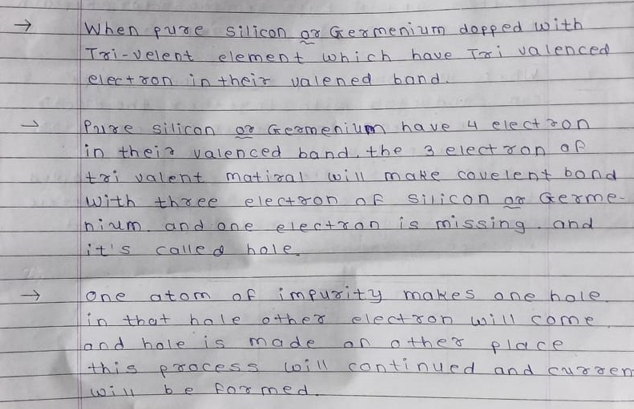 → When pure silicon or Germenium dopped with
Tri-velent element which have Tri valenced
electron in their valened band.
→ Pure silicon or Germenium have 4 electron
in their valenced band. the 3 electron of
tri valent matiral will make covelent bond
with three electron of silicon or Germe-
nium. and one electron is missing. and
it's called hole.
→ one atom of impurity makes one hole.
in that hole other electron will come
and hole is made on other place
this process will continued and curren
will be formed.